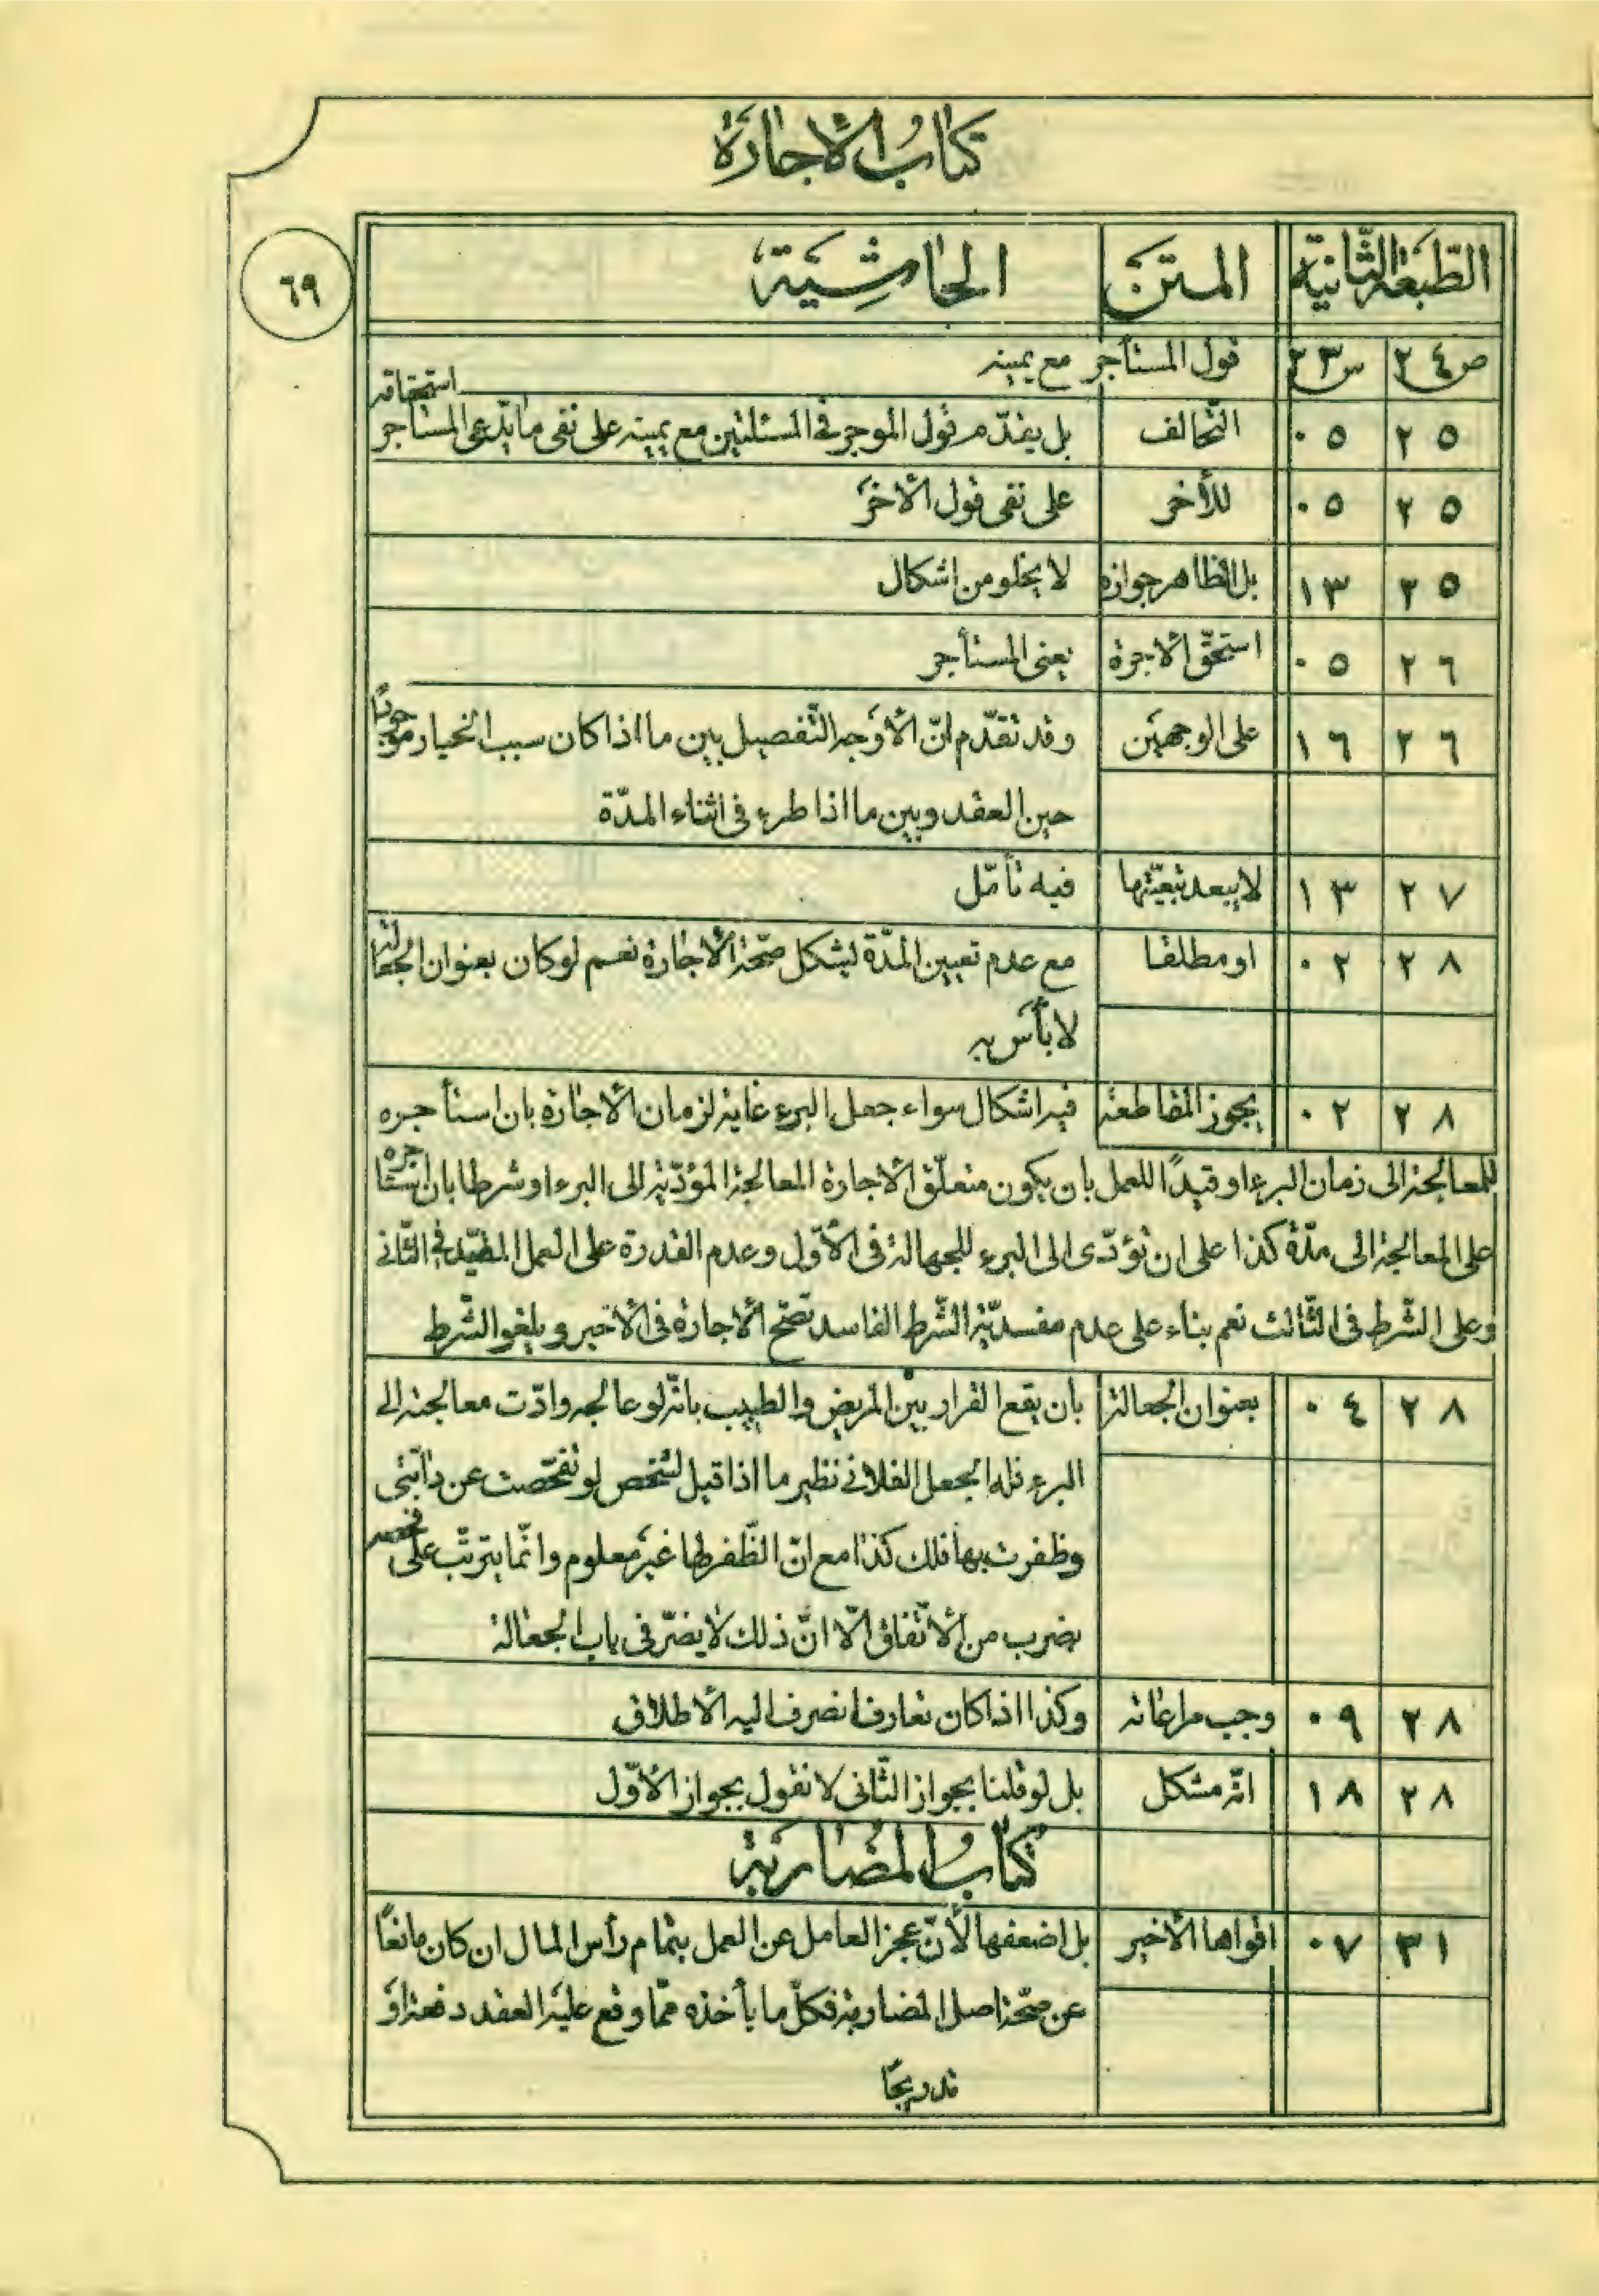 كتاب الاجارة
الطّبعة الثّانية المتن الحاشية
٦٩
ص٢٤ س٢٣ قول المستأجر مع يمينه
استحقاقه
٢٥ ٠٥ التّحالف بل يقدّم قول الموجر فى المسئلتين مع يمينه على نفى ما يدّعى المستأجر
٢٥ ٠٥ للأخر على نفى قول الاخر
٢٥ ١٣ بل الظاهر جوازه لا يخلو من اشكال
٢٦ ٠٥ استحقّ الاجرة يعنى المستأجر
٢٦ ١٦ على الوجهين وقد تقدّم انّ الاوجه التّفصيل بين ما اذا كان سبب الخيار موجودًا
حين العقد وبين ما اذا طرء فى اثناء المدّة
٢٧ ١٣ لا يبعد تبعيّتها فيه تأمّل
٢٨ ٠٢ او مطلقا مع عدم تعيين المدّة يشكل صحّة الاجارة نعم لو كان بعنوان الجعالة
لا بأس به
٢٨ ٠٢ يجوز المقاطعة فيه اشكال سواء جعل البرء غاية لزمان الاجارة بان استأجره
للمعالجة الى زمان البرء او قيدًا للعمل بان يكون متعلّق الاجارة المعالجة المؤدّية الى البرء او شرطا بان استأجره
على المعالجة الى مدّة كذا على ان تؤدّى الى البرء للجهالة فى الاوّل وعدم القدرة على العمل المقيّد فى الثّانى
وعلى الشّرط فى الثّالث نعم بناء على عدم مفسديّة الشّرط الفاسد تصحّ الاجارة فى الاخير ويلغو الشّرط
٢٨ ٠٤ بعنوان الجعالة بأن يقع القرار بين المريض والطبيب بانّه لو عالجه وادّت معالجته الى
البرء فله الجعل الفلانى نظير ما اذا قيل لشخص لو تفحّصت عن دابّتى
وظفرت بها فلك كذا مع انّ الظّفر بها غير معلوم وانّما يترتّب على فحصه
بضرب من الاتّفاق الّا انّ ذلك لا يضرّ فى باب الجعالة
٢٨ ٠٩ وجب مراعاته وكذا اذا كان تعارف انصرف اليه الاطلاق
٢٨ ١٨ انّه مشكل بل لو قلنا بجواز الثّانى لا نقول بجواز الاوّل
كتاب المضاربة
٣١ ٠٧ اقواها الأخير بل اضعفها لأنّ عجز العامل عن العمل بتمام رأس المال ان كان مانعًا
عن صحّة اصل المضاربة فكلّ ما يأخذه ممّا وقع عليه العقد دفعة او
تدريجًا